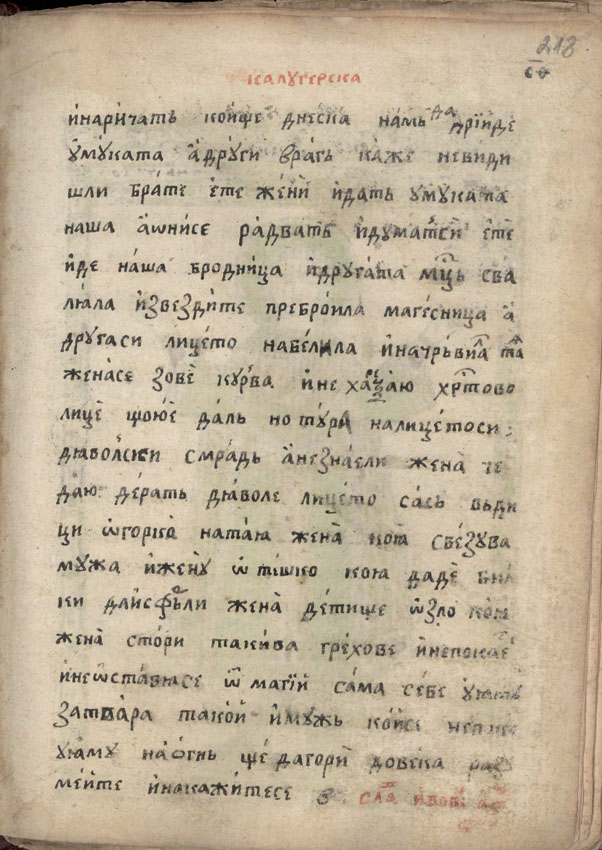 калугерска
218
с҃ѳ
и҆нари́чатъ ко́йще дне́ска на́мъ да дрїи́де
ѹ҆мѹ́ката а҆дрѹ́ги вра́гъ ка́же неви́ди
шли бра́те е҆те́ же́ни и҆да́тъ ѹмѹ́ката
на́ша а҆ѡни́се ра́дватъ и҆дѹ́мат си е҆те́
и҆де на́ша бродни́ца и҆дрѹга́та мц҃ъ сва
лѧ́ла и҆звезди́те преброи́ла маге́сница а҆
дрѹга́си лице́то набели́ла и҆начрьви́ла та́
жена́се зове́ кѹ́рва и҆не ха́ресаю хр҃тово
лице́ щою́е да́лъ нотѹ́рѧ налице́тоси
дїа́волски смра́дъ а҆незна́ели жена́ че
даю де́ратъ дїа́воле лице́то са́съ въди
ци ѡ҆горко́ ната́ю жена́ коѧ̀ све́зѹва
мѹ́жа и҆жену̀ ѡ҆ ти́шко кою̀ даде́ би́л
ки да́и жена̀ де́тище ѡ҆зло́ коѧ̀
жена̀ сто́ри таки́ва грехове́ и҆непока́е
и҆неѡ҆ста́висе ѿ маги́й са́ма се́бе
затва́ра тако́й и҆мѹ́жъ ко́йсе
на́огнь ще́ дагори́ дове́ка раз
ме́йте и҆пока́жи́тесе сла́ и҆бо҃гѹ